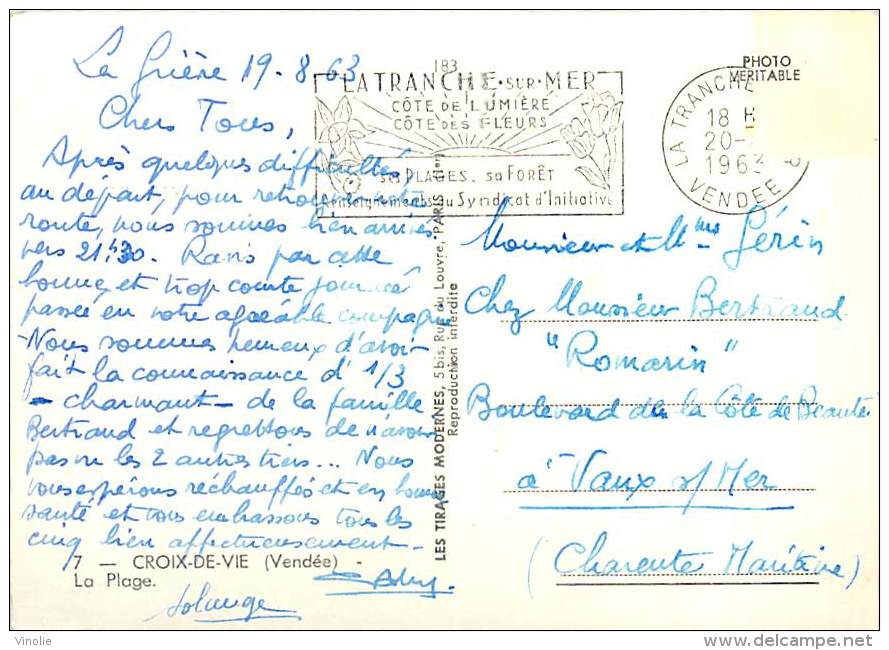 La Grière 19-8-63
Chers Tous,
Après quelques difficultés,
au départ, pour retrouver notre
route, nous sommes bien arrivés
vers 21h30. Ravis par cette
bonne et trop courte journée
passée en votre agréable compagnie
Nous sommes heureux d'avoir
fait la connaissance d' 1/3
- charmant - de la famille
Bertrand et regrettons de n'avoir
pas vu les 2 autres tiers... Nous
vous espérons réchauffés et en bonne
santé et vous embrassons tous les
cinq bien affectueusement -
Solange
7 — CROIX-DE-VIE (Vendée) -
La Plage.
183
LA TRANCHE-SUR-MER
CÔTE DE LUMIÈRE
CÔTE DES FLEURS
SES PLAGES. sa FORÊT
Renseignements au Syndicat d'Initiative
LA TRANCHE
18 H
20-
1963
VENDEE
PHOTO
VERITABLE
LES TIRAGES MODERNES, 5 bis, Rue du Louvre, PARIS (1er)
Reproduction interdite
Monsieur et Mme Gérin
Chez Monsieur Bertrand
"Romarin"
Boulevard de la Côte de Beauté
à Vaux s/Mer
(Charente Maritime)
Vinolie
delcampe.net